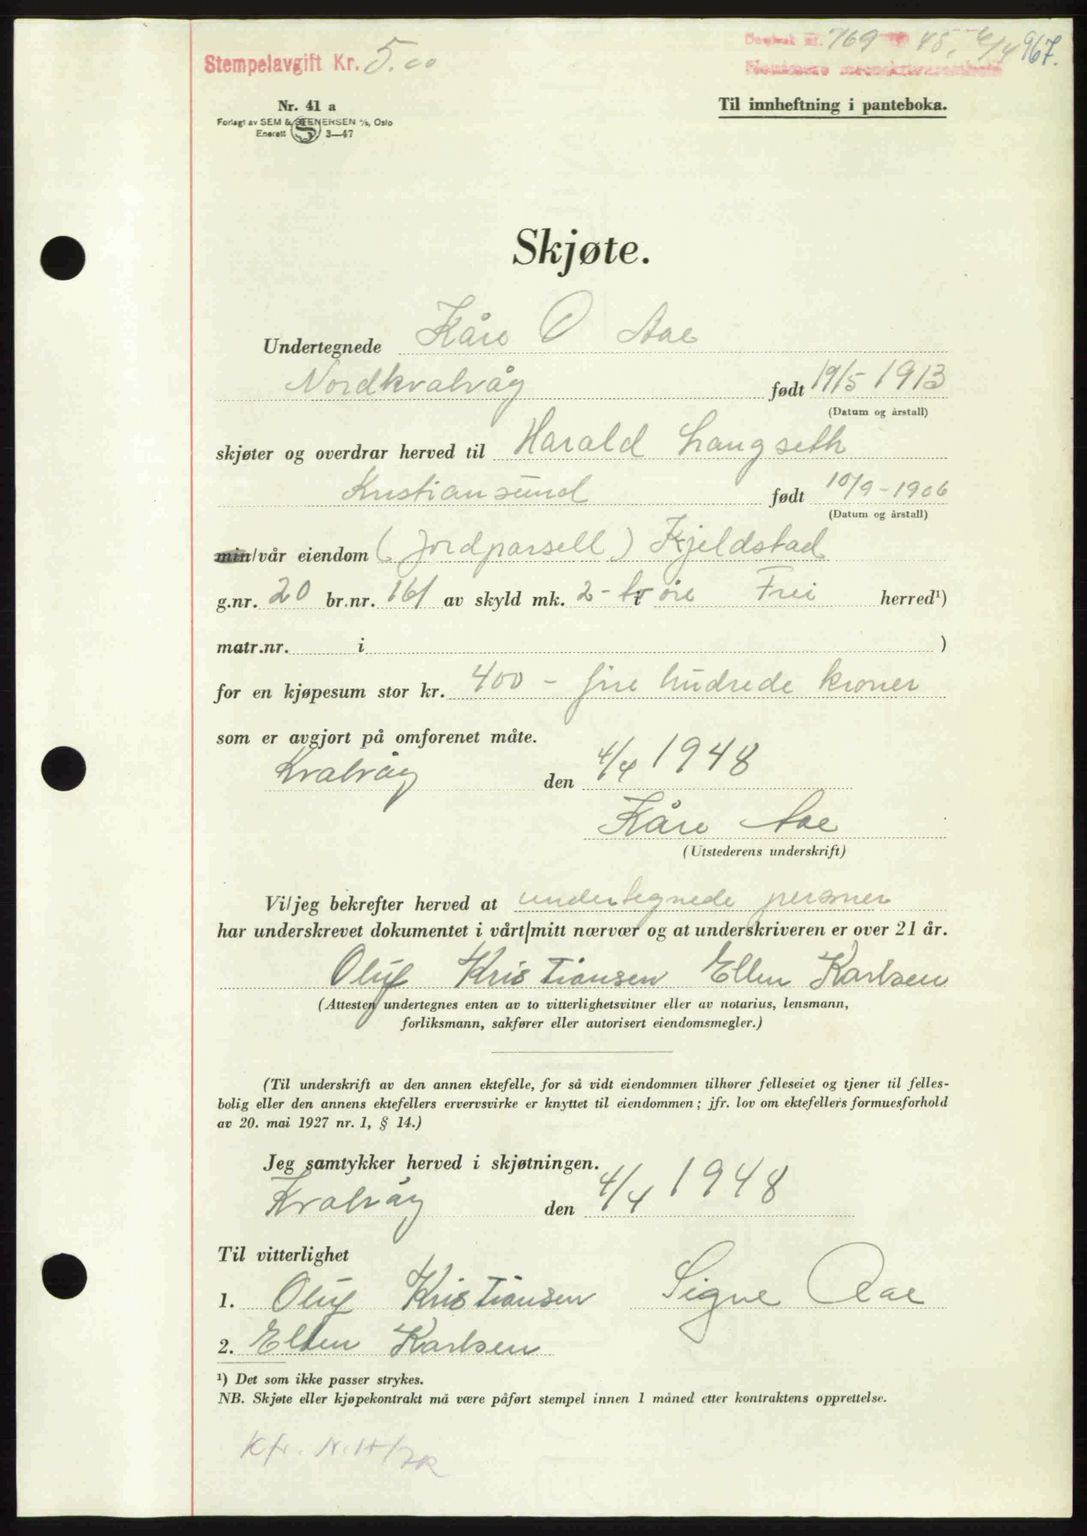 Stempelavgift Kr. 5.00
Dagbok nr. 769 48, 6/4 967.
Nr. 41 a
Forlagt av SEM & STENERSEN A/S, Oslo
Enerett 3—47
Til innheftning i panteboka.
Skjøte.
Undertegnede Kåre O Aae
Nordkvalvåg født 19/5 1913
(Datum og årstall)
skjøter og overdrar herved til Harald Langseth
Kristiansund født 10/9-1906
(Datum og årstall)
min/vår eiendom (Jordparsell) Kjeldstad
g.nr. 20 br.nr. 161 av skyld mk. 2- to øre i Frei herred¹)
matr.nr. i )
for en kjøpesum stor kr. 400 - fire hundrede kroner
som er avgjort på omforenet måte.
Kvalvåg den 4/4 1948
Kåre Aae
(Utstederens underskrift)
Vi/jeg bekrefter herved at undertegnede personer
har underskrevet dokumentet i vårt/mitt nærvær og at underskriveren er over 21 år.
Oluf Kristiansen Ellen Karlsen
(Attesten undertegnes enten av to vitterlighetsvitner eller av notarius, lensmann,
forliksmann, sakfører eller autorisert eiendomsmegler.)
(Til underskrift av den annen ektefelle, for så vidt eiendommen tilhører felleseiet og tjener til felles-
bolig eller den annens ektefellers ervervsvirke er knyttet til eiendommen; jfr. lov om ektefellers formuesforhold
av 20. mai 1927 nr. 1, § 14.)
Jeg samtykker herved i skjøtningen.
Kvalvåg den 4/4 1948
Til vitterlighet
1. Oluf Kristiansen Signe Aae
2. Ellen Karlsen
¹) Det som ikke passer strykes.
NB. Skjøte eller kjøpekontrakt må være påført stempel innen 1 måned etter kontraktens opprettelse.
Kfr.